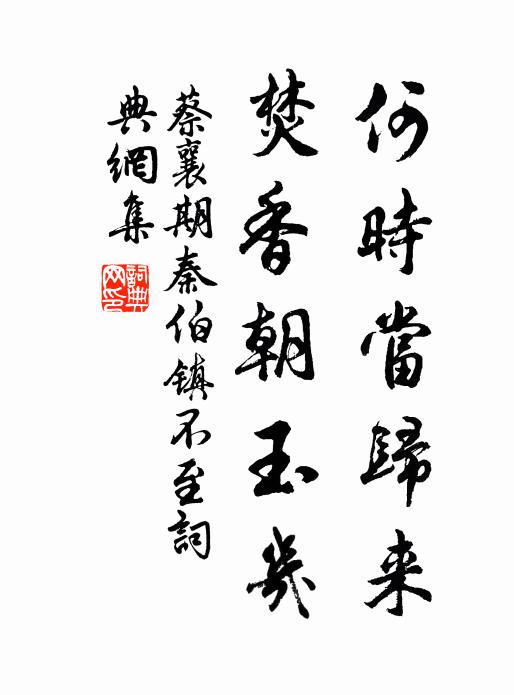 何時當歸来
焚香朝玉几
蔡襄期秦伯镇不至詞
典網集
詞典网印